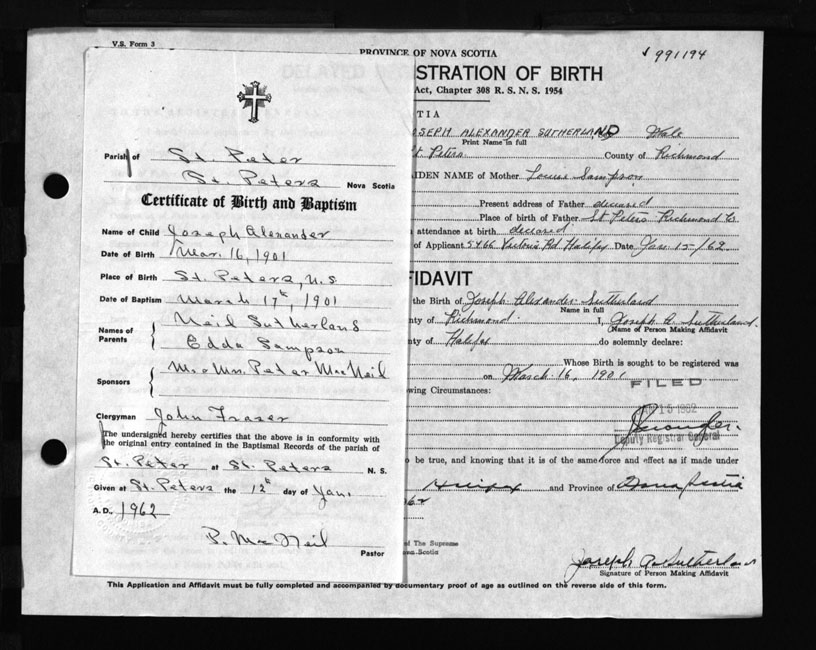 V.S. Form 3
PROVINCE OF NOVA SCOTIA
✓ 991194
STRATION OF BIRTH
Act, Chapter 308 R. S. N. S. 1954
TIA
OSEPH ALEXANDER SUTHERLAND Male
Print Name in full
St Peters County of Richmond
IDEN NAME of Mother Louise Sampson
Present address of Father deceased
Place of birth of Father St Peters Richmond Co
attendance at birth deceased
of Applicant 5466 Victoria Rd Halifax Date Jan 15-/62
FIDAVIT
the Birth of Joseph Alexander Sutherland
Name in full
ty of Richmond. I, Joseph A. Sutherland.
(Name of Person Making Affidavit
ty of Halifax do solemnly declare:
Whose Birth is sought to be registered was
on March 16, 1901
FILED
wing Circumstances:
15 1962
Deputy Registrar General
o be true, and knowing that it is of the same force and effect as if made under
Halifax and Province of Nova Scotia
962
of The Supreme
Scotia
Joseph A. Sutherland
Signature of Person Making Affidavit
Parish of St. Peter
St. Peters Nova Scotia
Certificate of Birth and Baptism
Name of Child Joseph Alexander
Date of Birth Mar. 16, 1901
Place of Birth St. Peters, N.S.
Date of Baptism March 17th, 1901
Names of Parents Neil Sutherland
Edda Sampson
Sponsors Mr & Mrs. Peter MacNeil
Clergyman John Fraser
The undersigned hereby certifies that the above is in conformity with
the original entry contained in the Baptismal Records of the parish of
St. Peter at St. Peters N. S.
Given at St. Peters the 12th day of Jan.
A.D., 1962
P. MacNeil
Pastor
This Application and Affidavit must be fully completed and accompanied by documentary proof of age as outlined on the reverse side of this form.